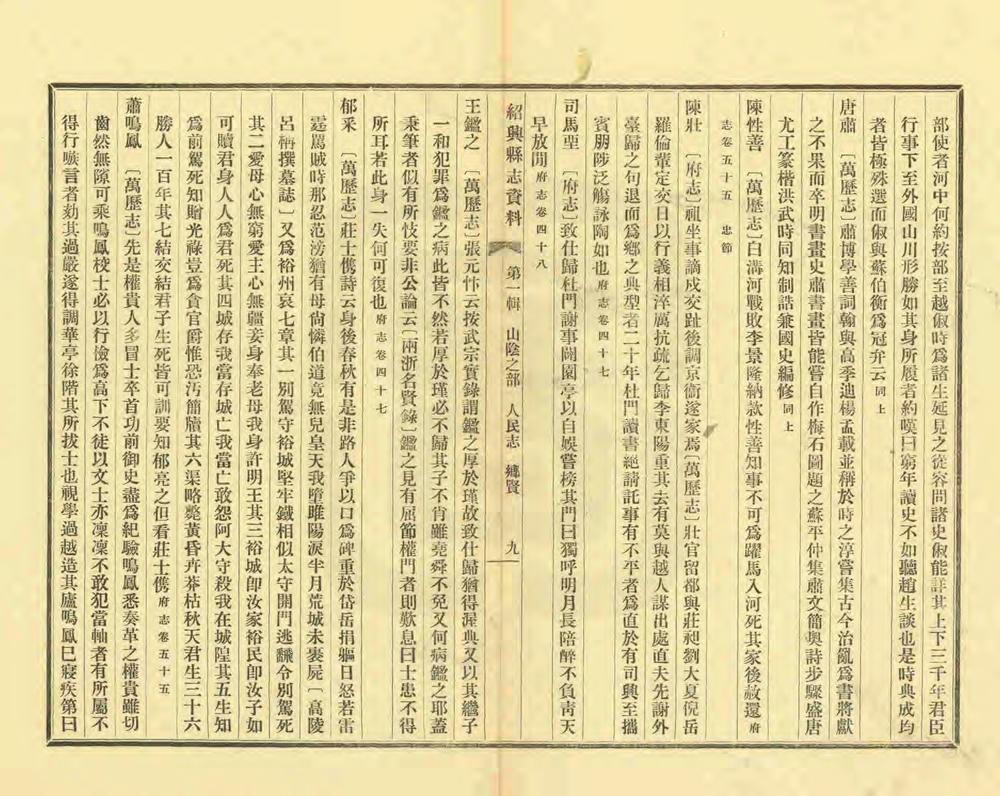 部使者河中何約按部至越俶時爲諸生延見之從容問諸史俶能詳其上下三千年君臣
行事下至外國山川形勝如其身所履者約嘆曰窮年讀史不如聽趙生談也是時典成均
者皆極殊選而俶與蘇伯衡爲冠弁云同上
唐肅　〔萬歷志〕肅博學善詞翰與高季迪楊孟載並稱於時之淳嘗集古今治亂爲書將獻
之不果而卒明書畫史肅書畫皆能嘗自作梅石圖題之蘇平仲集肅文簡奧詩步驟盛唐
尤工篆楷洪武時同知制誥兼國史編修同上
陳性善　〔萬歷志〕白溝河戰敗李景隆納款性善知事不可爲躍馬入河死其家後赦還府
志卷五十五　忠節
陳壯　〔府志〕祖坐事謫戍交趾後調京衞遂家焉〔萬歷志〕壯官留都與莊昶劉大夏倪岳
羅倫輩定交日以行義相淬厲抗疏乞歸李東陽重其去有莫與越人謀出處直夫先謝外
臺歸之句退而爲鄉之典型者二十年杜門讀書絶請託事有不平者爲直於有司興至攜
賓朋陟泛觴詠陶如也府志卷四十七
司馬堊　〔府志〕致仕歸杜門謝事闢園亭以自娛嘗榜其門曰獨呼明月長陪醉不負靑天
早放閒府志卷四十八
紹興縣志資料　第一輯　山陰之部　人民志　鄉賢　九
王鑑之　〔萬歷志〕張元忭云按武宗實錄謂鑑之厚於瑾故致仕歸猶得渥典又以其繼子
一和犯罪爲鑑之病此皆不然若厚於瑾必不歸其子不肖雖堯舜不免又何病鑑之耶蓋
秉筆者似有所忮要非公論云〔兩浙名賢錄〕鑑之見有屈節權門者則歎息曰士患不得
所耳若此身一失何可復也府志卷四十七
郁采　〔萬歷志〕莊士儁詩云身後春秋有是非路人爭以口爲碑重於岱岳捐軀日怒若雷
霆罵賊時那忍范滂猶有母尙憐伯道竟無兒皇天我墮雎陽淚半月荒城未裹屍〔高陵
呂柟撰墓誌〕又爲裕州哀七章其一別駕守裕城堅牢鐵相似太守開門逃飜令別駕死
其二愛母心無窮愛主心無疆妾身奉老母我身許明王其三裕城卽汝家裕民卽汝子如
可贖君身人人爲君死其四城存我當存城亡我當亡敢怨阿大守殺我在城隍其五生知
爲前駕死知贈光祿豈爲貪官爵惟恐汚簡牘其六渠略斃黃昏卉莽枯秋天君生三十六
勝人一百年其七結交結君子生死皆可訓要知郁亮之但看莊士儁府志卷五十五
蕭鳴鳳　〔萬歷志〕先是權貴人多冒士卒首功前御史盡爲紀驗鳴鳳悉奏革之權貴雖切
齒然無隙可乘鳴鳳校士必以行儉爲高下不徒以文士亦凜凜不敢犯當軸者有所屬不
得行嗾言者劾其過嚴遂得調華亭徐階其所拔士也視學過越造其廬鳴鳳巳寢疾第曰